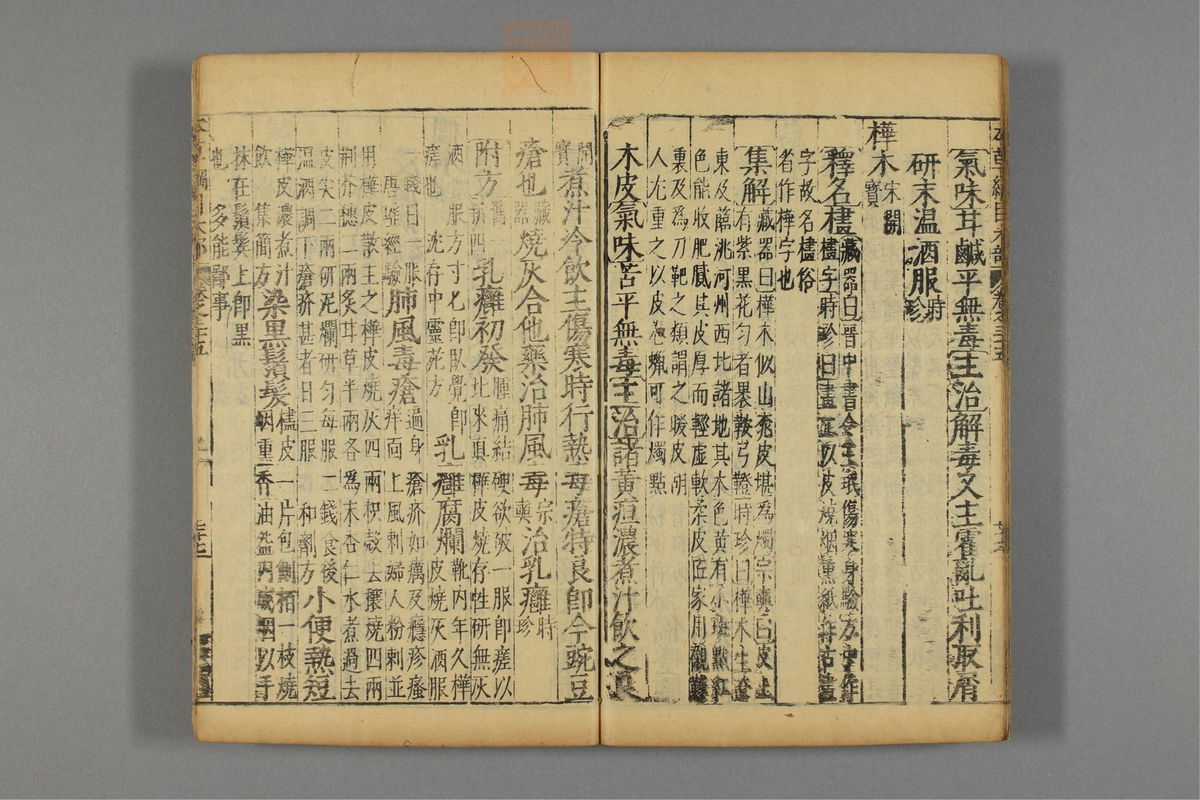 氣味甘鹹平無毒主治解毒又主霍亂吐利取屑
研末溫酒服時珍
樺木宋開寶
釋名樺藏器曰晉中書令王珉傷寒身驗方中作
樺字時珍曰畫工以皮燒烟熏紙作古畫
字故名樺俗
名作樺字也
集解藏器曰樺木似山桃皮堪為燭宗奭曰皮上
有紫黑花勻者裹鞍弓鐙時珍曰樺木生遼
東及臨洮河州西北諸地其木色黃有小斑點紅
色能收肥膩其皮厚而輕虛軟柔皮匠家用襯靴
裏及為刀靶之類謂之暖皮胡
人尤重之以皮卷蠟可作燭點
木皮氣味苦平無毒主治諸黃疸濃煮汁飲之良
開寶煮汁冷飲主傷寒時行熱毒瘡特良即今豌豆
瘡也藏器燒灰合他藥治肺風毒宗奭治乳癰時珍
附方舊一新四乳癰初發腫痛結硬欲破一服即瘥以
北來真樺皮燒存性研無灰
酒服方寸匕即臥覺即
瘥也沈存中靈苑方乳癰腐爛靴內年久樺
皮燒灰酒服
一錢日一服
再 經驗肺風毒瘡遍身瘡疥如癘及癮疹瘙
痒面上風刺婦人粉刺並
用樺皮散主之樺皮燒灰四兩枳殼去穰燒四兩
荊芥穗二兩炙甘草半兩各為末杏仁水煮過去
皮尖二兩研泥爛研勻每服二錢食後
溫酒調下瘡疥甚者日三服和劑方小便熱短
樺皮濃煮汁
飲集簡方染黑鬚髮樺皮一片包側柏一枝燒
烟熏香油盌內成烟以手
抹在鬚鬢上即黑
也多能鄙事